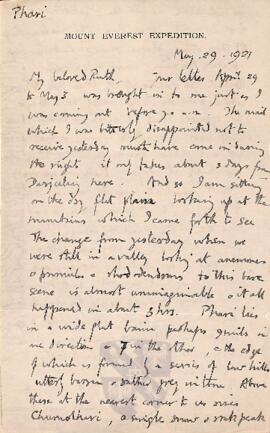 Phari
MOUNT EVEREST EXPEDITION.
May. 29. 1921
My beloved Ruth, Your letter April 29
to May 3 was brought in to me just as I
was coming out before 9 a.m. The mail
which I was bitterly disappointed not to
receive yesterday must have come in during
the night it only takes about 3 days from
Darjeeling here. And so I am sitting
on the dry flat plain looking up at the
mountains which I came forth to see
The change from yesterday when we
were still in a valley looking at anemones
& primulas & rhododendrons to this bare
scene is almost unimaginable & it all
happened in about 3 hrs. Phari lies
in a wide flat basin perhaps 9 miles in
one direction & 7 in the other, & the edge
of which is formed by a series of low hills
utterly barren & rather grey in tone. Above
these at the nearest corner to us rises
Chumolhari, a single snow & rock peak